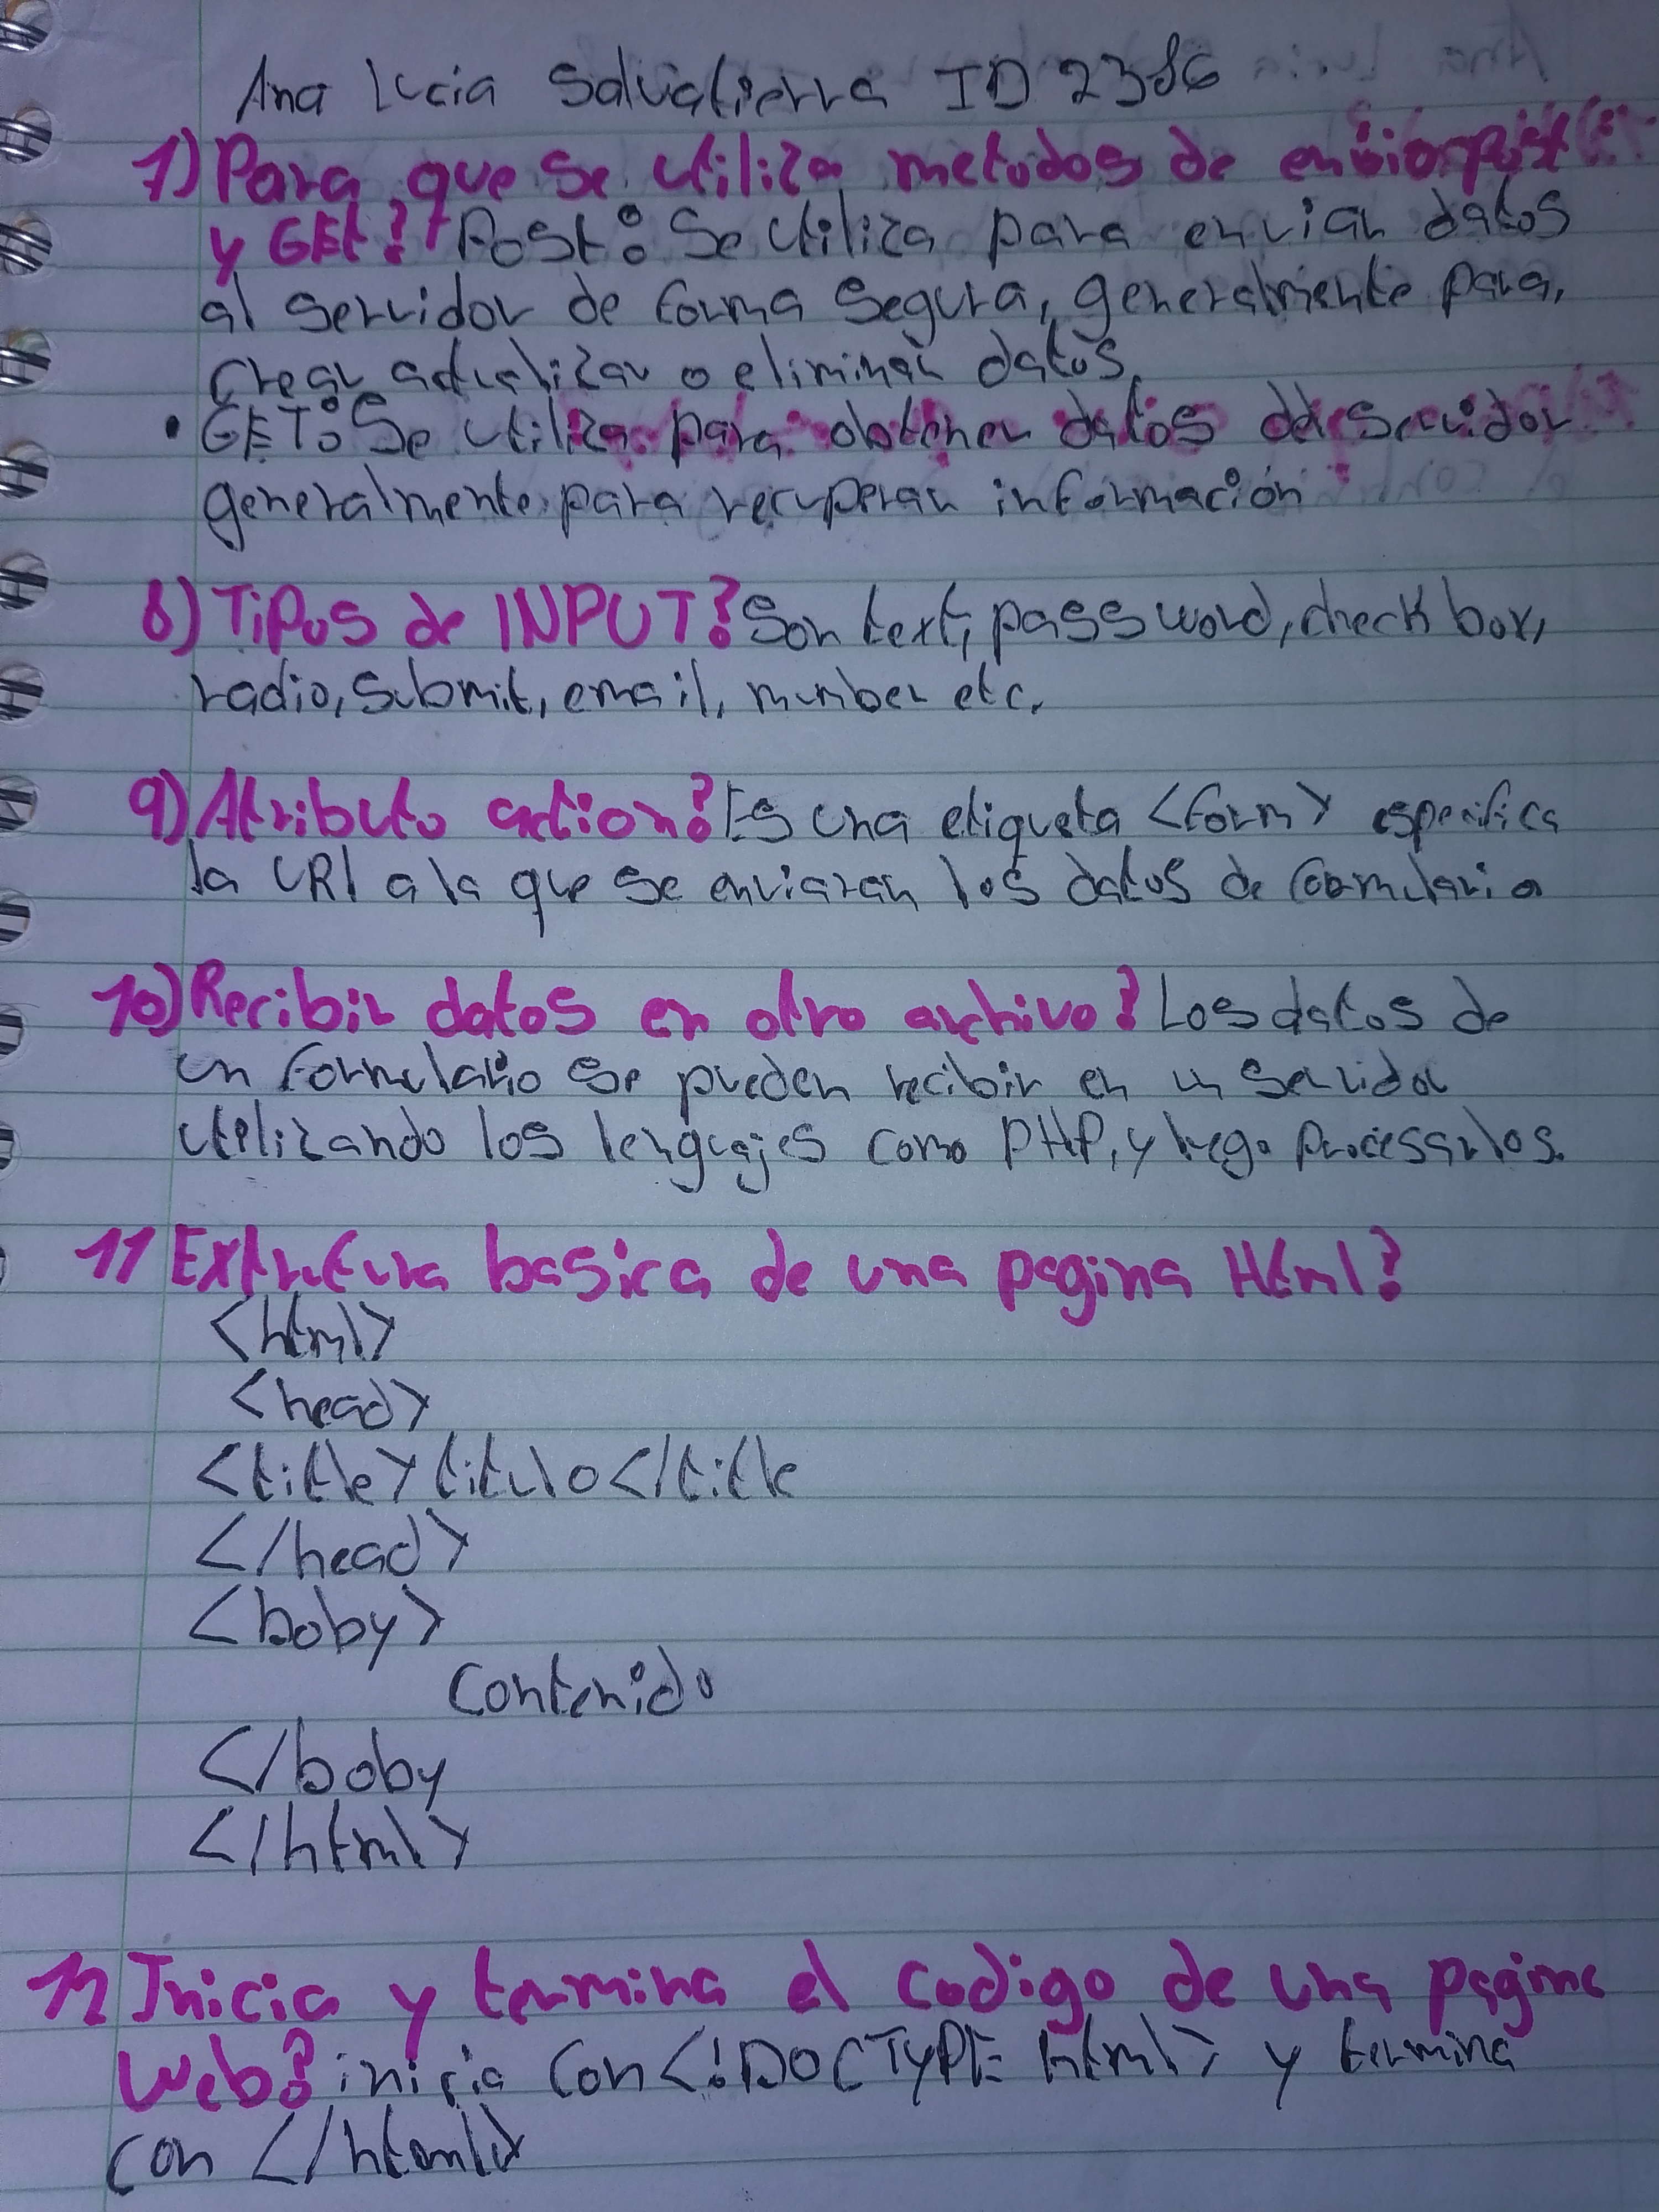 Ana Lucia Salvatierra ID 2386
7) Para que se utiliza metodos de envio post
y GET? Post: Se utiliza para enviar datos
al servidor de forma segura, generalmente para,
crear actualizar o eliminar datos,
• GET: Se utiliza para obtener datos del servidor
generalmente para recuperar información
8) Tipos de INPUT? Son text, password, check box,
radio, submit, email, number etc.
9) Atributo action? Es una etiqueta <form> especifica
la URl a la que se enviaran los datos de formulario
10) Recibir datos en otro archivo? Los datos de
un formulario se pueden recibir en un servidor
utilizando los lenguajes como PHP, y luego procesarlos.
11 Extrutura basica de una pagina Html?
<html>
<head>
<title> titulo </title
</head>
<boby>
Contenido
</boby
</html>
12 Inicia y termina el codigo de una pagina
web? inicia con <!DOCTYPE html> y termina
con </html>